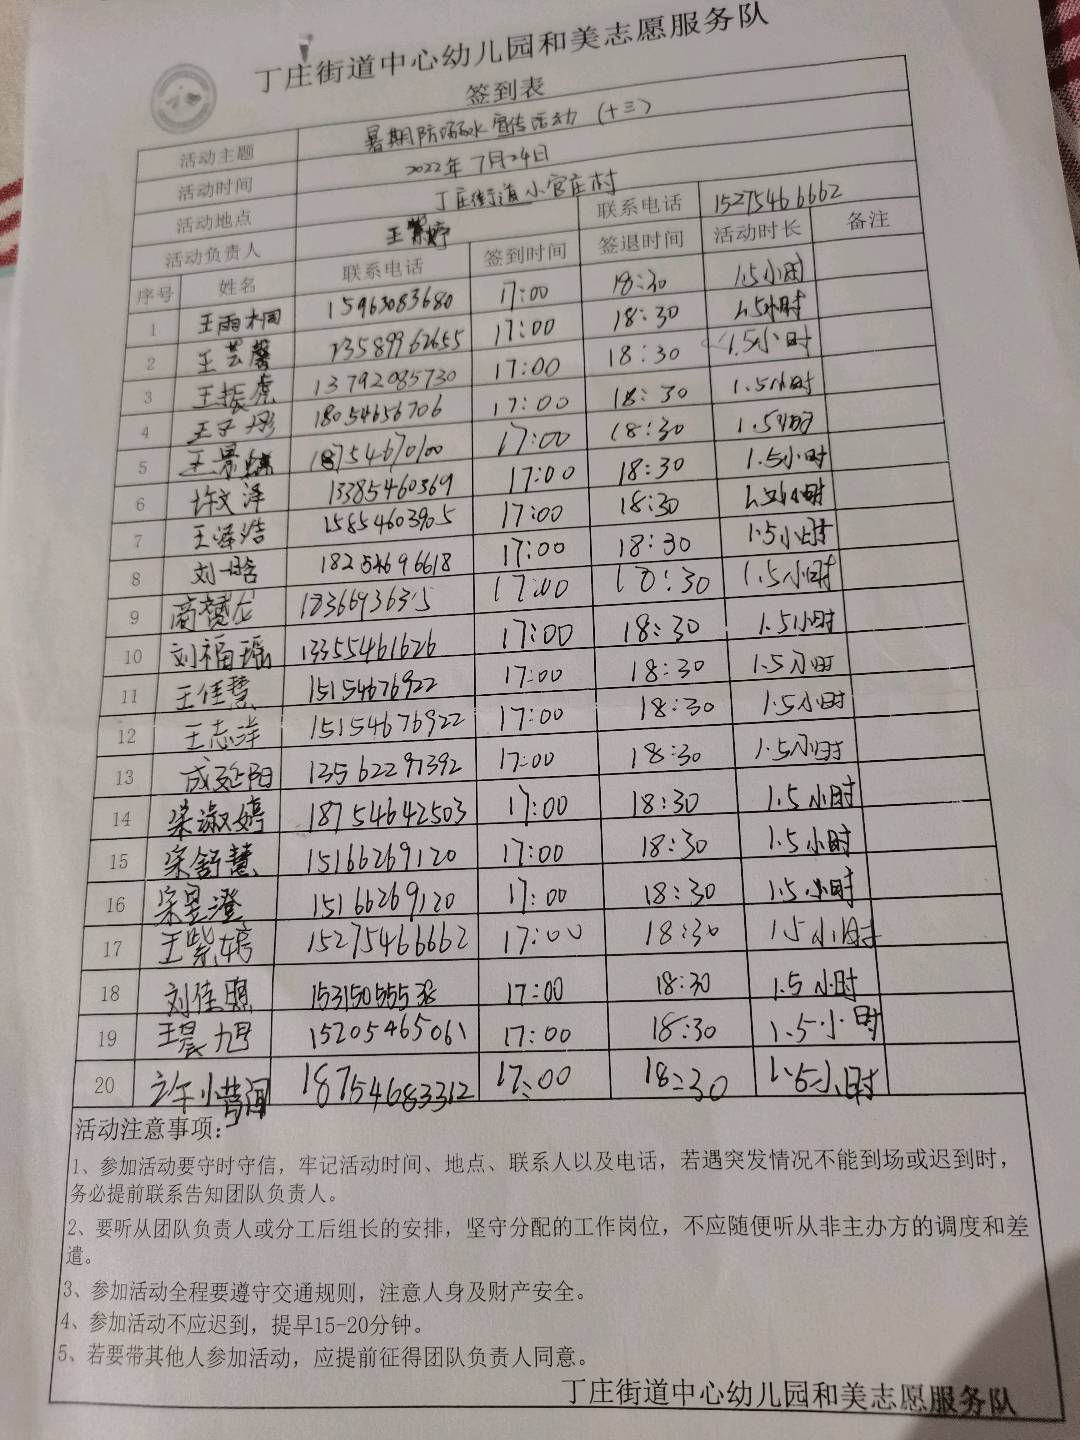 丁庄街道中心幼儿园和美志愿服务队
签到表
活动主题 暑期防溺水宣传活动（十三）
活动时间 2022年7月24日
活动地点 丁庄街道小官庄村
活动负责人 王紫婷 联系电话 15275466662
序号 姓名 联系电话 签到时间 签退时间 活动时长 备注
1 王雨桐 15963083680 17:00 18:30 1.5小时
2 王芸馨 13589962655 17:00 18:30 1.5小时
3 王振虎 13792085730 17:00 18:30 1.5小时
4 王子彤 18054656706 17:00 18:30 1.5小时
5 王景 18754670100 17:00 18:30 1.5小时
6 许文泽 13385460369 17:00 18:30 1.5小时
7 王泽浩 15854603905 17:00 18:30 1.5小时
8 刘一晗 18254696618 17:00 18:30 1.5小时
9 商 龙 17:00 18:30 1.5小时
10 刘福瑶 13355461626 17:00 18:30 1.5小时
11 王佳慧 15154676922 17:00 18:30 1.5小时
12 王志洋 15154676922 17:00 18:30 1.5小时
13 成延阳 13562297392 17:00 18:30 1.5小时
14 宋淑婷 18754642503 17:00 18:30 1.5小时
15 宋舒慧 15166269120 17:00 18:30 1.5小时
16 宋昱澄 15166269120 17:00 18:30 1.5小时
17 王紫婷 15275466662 17:00 18:30 1.5小时
18 刘佳照 17:00 18:30 1.5小时
19 王晨旭 15205465061 17:00 18:30 1.5小时
20 许小 18754683312 17:00 18:30 1.5小时
活动注意事项：
1、参加活动要守时守信，牢记活动时间、地点、联系人以及电话，若遇突发情况不能到场或迟到时，
务必提前联系告知团队负责人。
2、要听从团队负责人或分工后组长的安排，坚守分配的工作岗位，不应随便听从非主办方的调度和差
遣。
3、参加活动全程要遵守交通规则，注意人身及财产安全。
4、参加活动不应迟到，提早15-20分钟。
5、若要带其他人参加活动，应提前征得团队负责人同意。
丁庄街道中心幼儿园和美志愿服务队